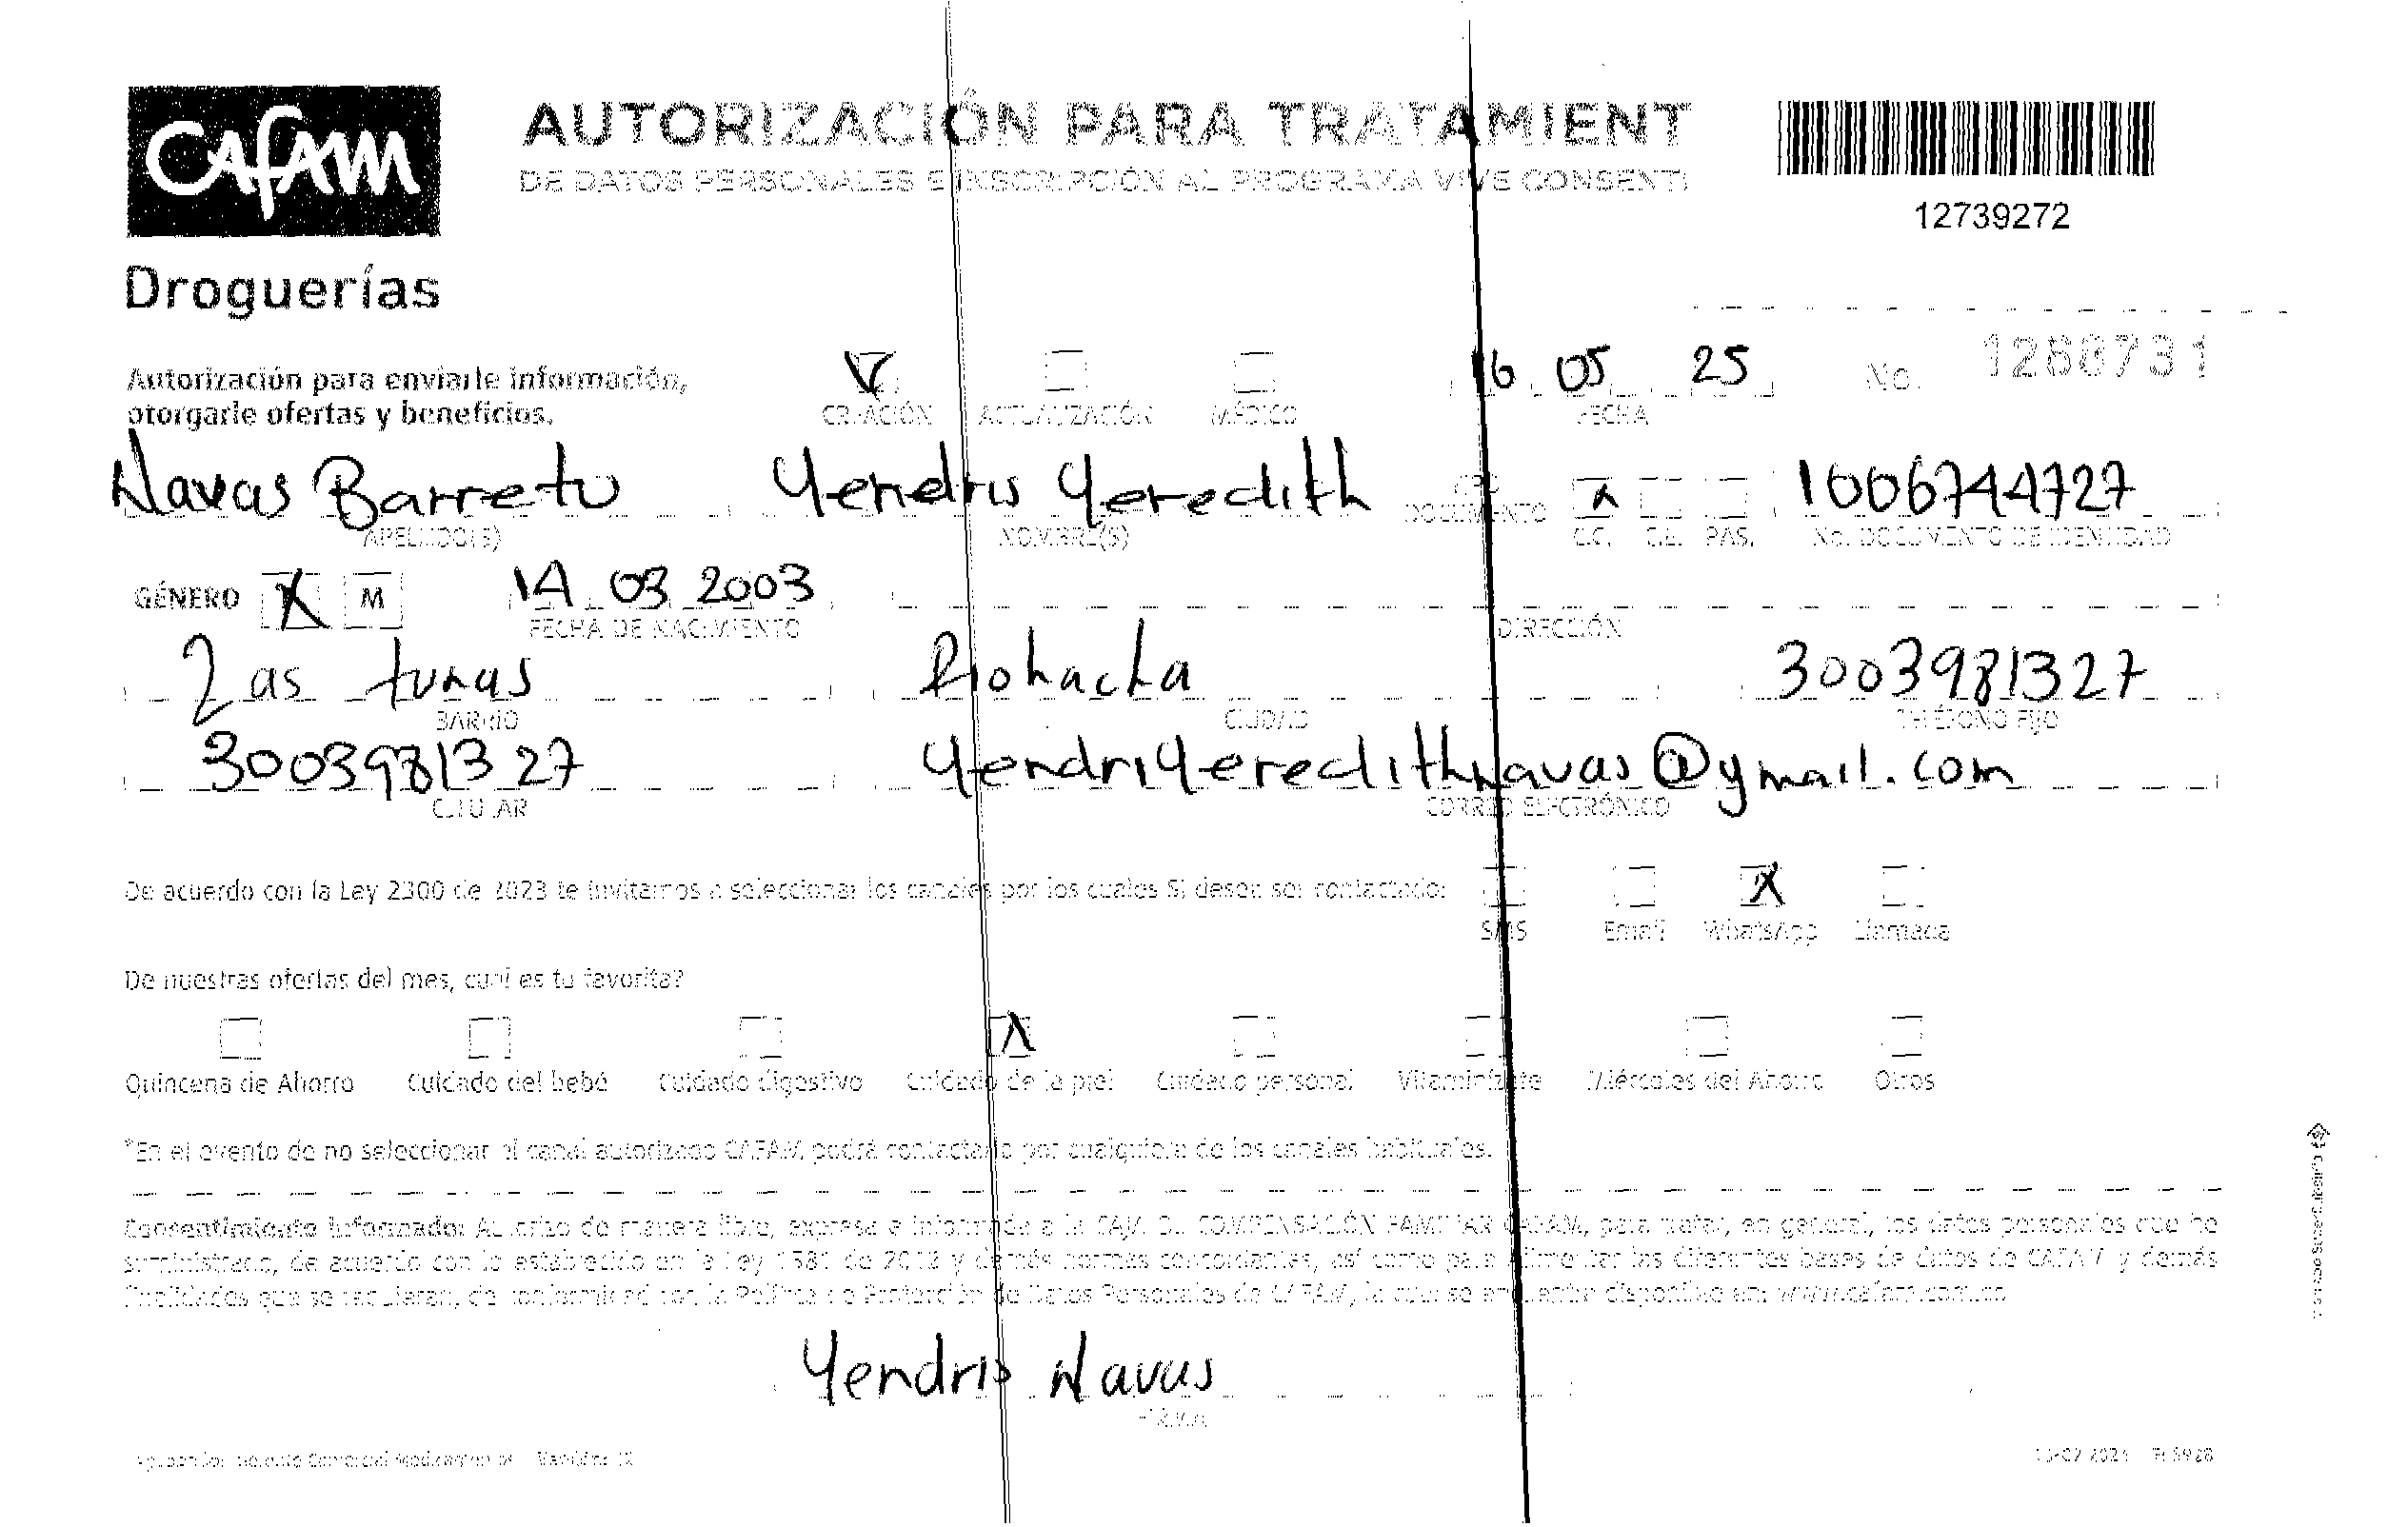 CAFAM
AUTORIZACIÓN PARA TRATAMIENT
DE DATOS PERSONALES E INSCRIPCIÓN AL PROGRAMA VIVE CONSENTI
12739272
Droguerías
Autorización para enviarle información,
otorgarle ofertas y beneficios.
CREACIÓN ACTUALIZACIÓN MÉDICO
16 05 25
FECHA
No. 1260731
Navas Barreto Yendris Yeredith
DOCUMENTO
1006744727
APELLIDO(S) NOMBRE(S) C.C. C.E. PAS. No. DOCUMENTO DE IDENTIDAD
GÉNERO X M 14 03 2003
FECHA DE NACIMIENTO DIRECCIÓN
Las tunas Riohacha 3003981327
BARRIO CIUDAD TELÉFONO FIJO
3003981327 YendriYeredithnavas@gmail.com
CELULAR CORREO ELECTRÓNICO
De acuerdo con la Ley 2300 de 2023 te invitamos a seleccionar los canales por los cuales Si desea ser contactado:
X
SMS Email WhatsApp Llamada
De nuestras ofertas del mes, cual es tu favorita?
X
Quincena de Ahorro Cuidado del bebé Cuidado digestivo Cuidado de la piel Cuidado personal Vitamínízate Miércoles del Ahorro Otros
*En el evento de no seleccionar el canal autorizado CAFAM, podrá contactarlo por cualquiera de los canales habituales.
Consentimiento informado: Autorizo de manera libre, expresa e informada a la CAJA DE COMPENSACIÓN FAMILIAR CAFAM, para tratar, en general, los datos personales que he
suministrado, de acuerdo con lo establecido en la Ley 1581 de 2012 y demás normas concordantes, así como para alimentar las diferentes bases de datos de CAFAM y demás
finalidades que se requieran, de conformidad con la Política de Protección de Datos Personales de CAFAM, la cual se encuentra disponible en: www.cafam.com.co
Yendris Navas
FIRMA